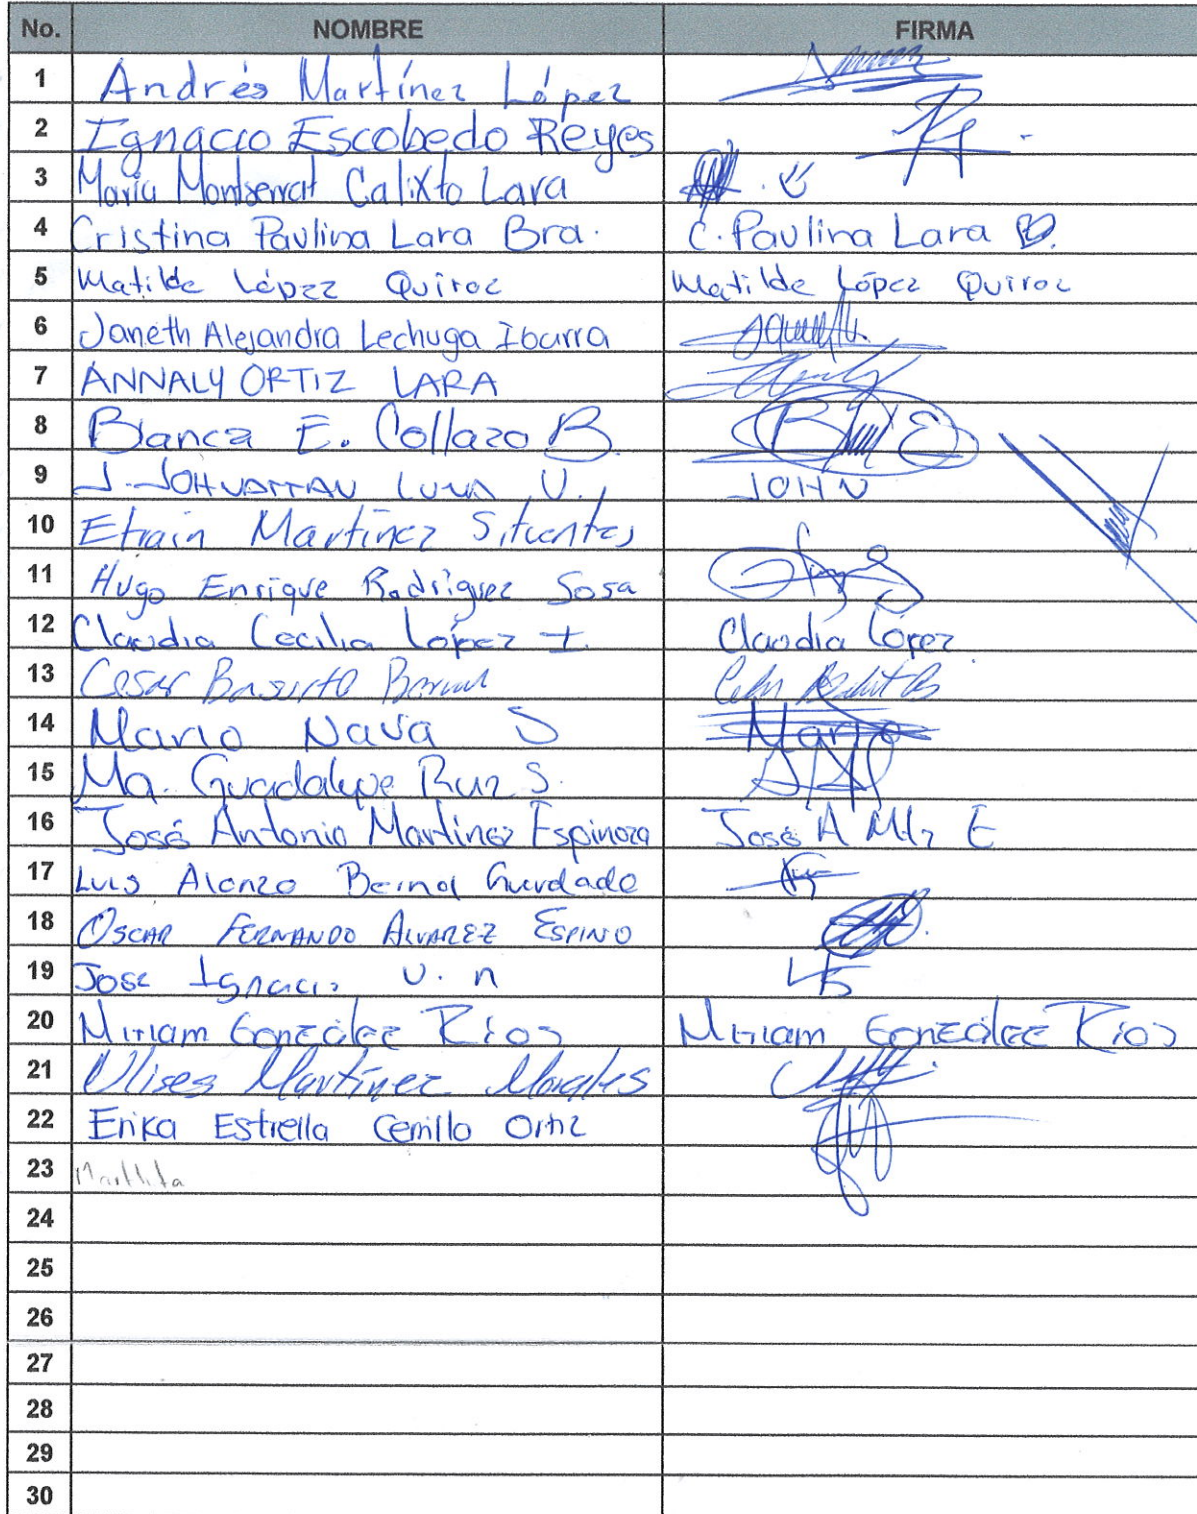 No. NOMBRE FIRMA
1 Andrés Martínez López
2 Ignacio Escobedo Reyes
3 María Montserrat Calixto Lara
4 Cristina Paulina Lara Bra. C. Paulina Lara
5 Matilde López Quiroz Matilde López Quiroz
6 Janeth Alejandra Lechuga Ibarra
7 ANNALY ORTIZ LARA
8 Blanca E. Collazo B.
9 J. JOHNATTAN LUNA V. JOHN
10 Efrain Martínez Sifuentes
11 Hugo Enrique Rodríguez Sosa
12 Claudia Cecilia López I. Claudia López
13 Cesar Basurto
14 Mario Nava S Mario
15 Ma. Guadalupe Ruiz S.
16 José Antonio Martínez Espinoza José A Mtz E
17 Luis Alonzo Bernal Guardado
18 OSCAR FERNANDO ALVAREZ ESPINO
19 Jose Ignacio V. n
20 Miriam González Ríos Miriam González Ríos
21 Ulises Martínez Morales
22 Erika Estrella Cerrillo Ortiz
23
24
25
26
27
28
29
30